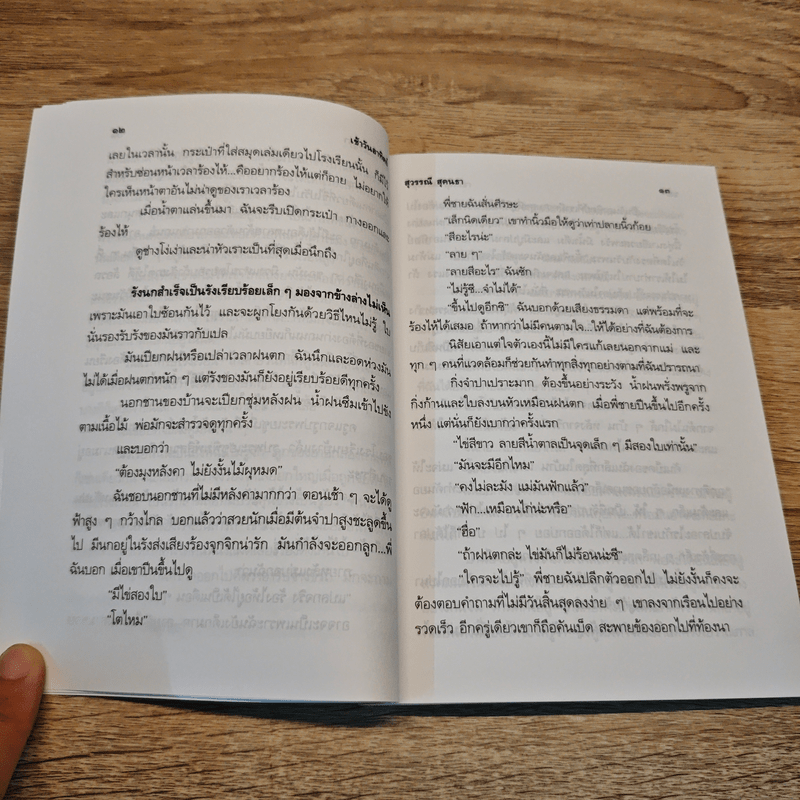 ๑๒
เช้าวันอาทิตย์
เลยในเวลานั้น กระเป๋าที่ใส่สมุดเล่มเดียวไปโรงเรียนนั้น ก็มีไว้
สำหรับซ่อนหน้าเวลาร้องไห้...คืออยากร้องไห้แต่ก็อาย ไม่อยากให้
ใครเห็นหน้าตาอันไม่น่าดูของเราเวลาร้อง
เมื่อน้ำตาแล่นขึ้นมา ฉันจะรีบเปิดกระเป๋า กางออกและ
ร้องไห้
ดูช่างโง่เง่าและน่าหัวเราะเป็นที่สุดเมื่อนึกถึง
รังนกสำเร็จเป็นรังเรียบร้อยเล็ก ๆ มองจากข้างล่างไม่เห็น
เพราะมันเอาใบซ้อนกันไว้ และจะผูกโยงกันด้วยวิธีไหนไม่รู้ ใบ
นั่นรองรับรังของมันราวกับเปล
มันเปียกฝนหรือเปล่าเวลาฝนตก ฉันนึกและอดห่วงมัน
ไม่ได้เมื่อฝนตกหนัก ๆ แต่รังของมันก็ยังอยู่เรียบร้อยดีทุกครั้ง
นอกชานของบ้านจะเปียกชุ่มหลังฝน น้ำฝนซึมเข้าไปขัง
ตามเนื้อไม้ พ่อมักจะสำรวจดูทุกครั้ง
และบอกว่า
“ต้องมุงหลังคา ไม่ยังงั้นไม้ผุหมด”
ฉันชอบนอกชานที่ไม่มีหลังคามากกว่า ตอนเช้า ๆ จะได้ดู
ฟ้าสูง ๆ กว้างไกล บอกแล้วว่าสวยนักเมื่อมีต้นจำปาสูงชะลูดขึ้น
ไป มีนกอยู่ในรังส่งเสียงร้องจุกจิกน่ารัก มันกำลังจะออกลูก...พี่
ฉันบอก เมื่อเขาปีนขึ้นไปดู
“มีไข่สองใบ”
“โตไหม”
สุวรรณี สุคนธา
๑๓
พี่ชายฉันสั่นศีรษะ
“เล็กนิดเดียว” เขาทำนิ้วมือให้ดูว่าเท่าปลายนิ้วก้อย
“สีอะไรน่ะ”
“ลาย ๆ”
“ลายสีอะไร” ฉันซัก
“ไม่รู้ซี...จำไม่ได้”
“ขึ้นไปดูอีกซิ” ฉันบอกด้วยเสียงธรรมดา แต่พร้อมที่จะ
ร้องไห้ได้เสมอ ถ้าหากว่าไม่มีคนตามใจ...ให้ได้อย่างที่ฉันต้องการ
นิสัยเอาแต่ใจตัวเองนี้ไม่มีใครแก้เลยนอกจากแม่ และ
ทุก ๆ คนที่แวดล้อมก็ช่วยกันทำทุกสิ่งทุกอย่างตามที่ฉันปรารถนา
กิ่งจำปาเปราะมาก ต้องขึ้นอย่างระวัง น้ำฝนพรั่งพรูจาก
กิ่งก้านและใบลงบนหัวเหมือนฝนตก เมื่อพี่ชายปีนขึ้นไปอีกครั้ง
หนึ่ง แต่นั่นก็ยังเบากว่าครั้งแรก
“ไข่สีขาว ลายสีน้ำตาลเป็นจุดเล็ก ๆ มีสองใบเท่านั้น”
“มันจะมีอีกไหม”
“คงไม่ละมัง แม่มันฟักแล้ว”
“ฟัก...เหมือนไก่น่ะหรือ”
“ฮื่อ”
“ถ้าฝนตกล่ะ ไข่มันก็ไม่ร้อนน่ะซี”
“ใครจะไปรู้” พี่ชายฉันปลีกตัวออกไป ไม่ยังงั้นก็คงจะ
ต้องตอบคำถามที่ไม่มีวันสิ้นสุดลงง่าย ๆ เขาลงจากเรือนไปอย่าง
รวดเร็ว อีกครู่เดียวเขาก็ถือคันเบ็ด สะพายข้องออกไปที่ท้องนา